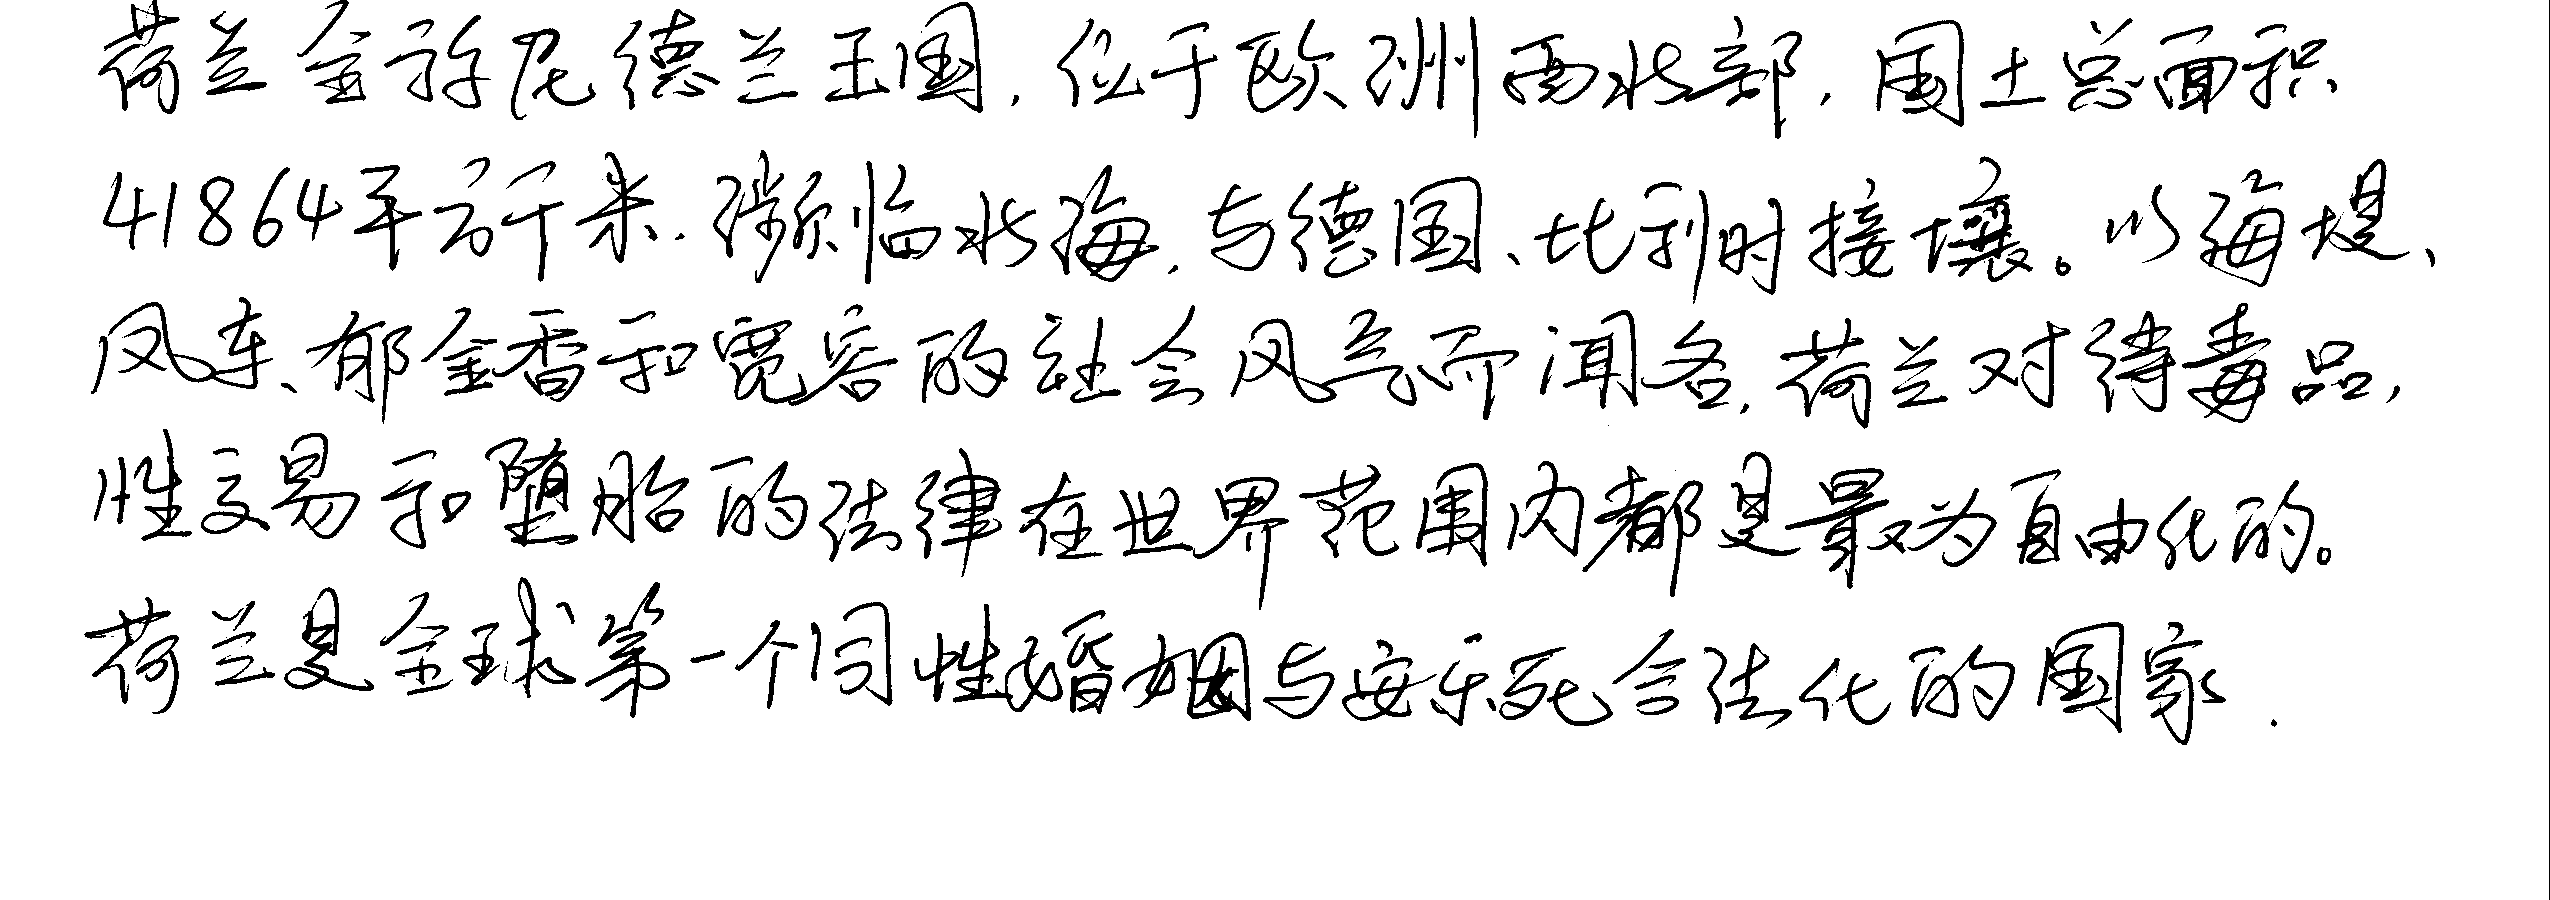 荷兰全称尼德兰王国,位于欧洲西北部,国土总面积
41864平方千米,濒临北海,与德国、比利时接壤。以海堤、
风车、郁金香和宽容的社会风气而闻名,荷兰对待毒品,
性交易和堕胎的法律在世界范围内都是最为自由化的。
荷兰是全球第一个同性婚姻与安乐死合法化的国家.